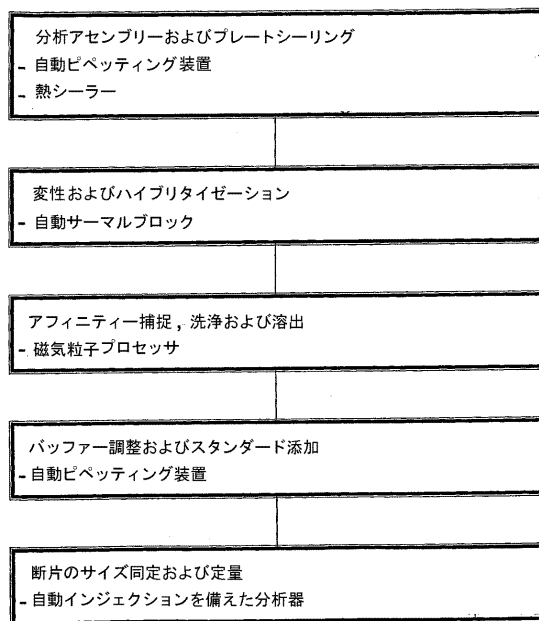 分析アセンブリーおよびプレートシーリング
- 自動ピペッティング装置
- 熱シーラー
変性およびハイブリタイゼーション
- 自動サーマルブロック
アフィニティー捕捉，洗浄および溶出
- 磁気粒子プロセッサ
バッファー調整およびスタンダード添加
- 自動ピペッティング装置
断片のサイズ同定および定量
- 自動インジェクションを備えた分析器